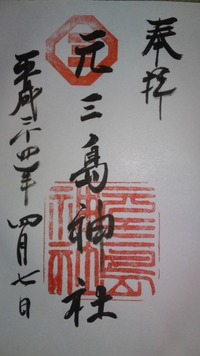 奉拝
元三島神社
平成二十四年四月七日